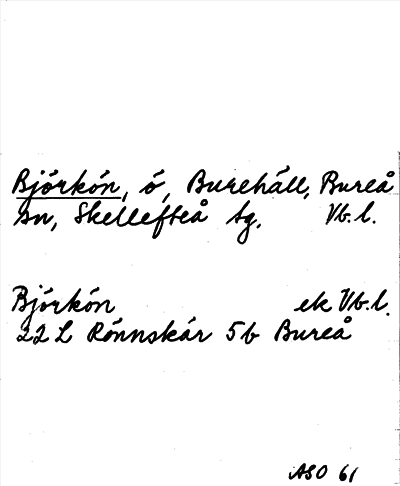 Björkön, ö, Burehäll, Bureå
sn, Skellefteå tg, Vb.l.
Björkön ek Vb.l.
22 L Rönnskär 5b Bureå
ASO 61